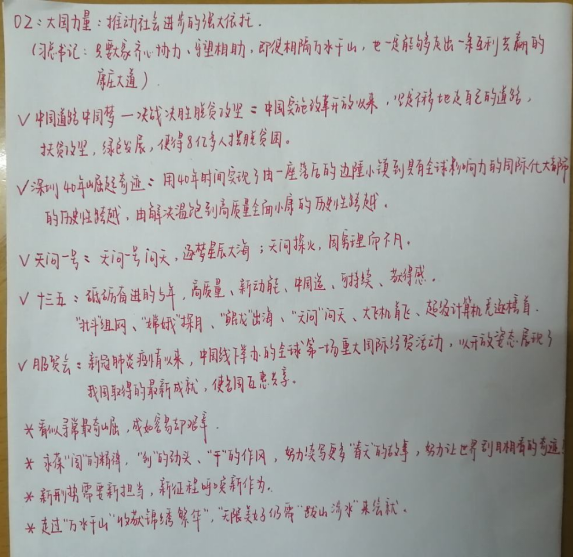 02：大国力量：推动社会进步的强大依托.
（习总书记：只要大家齐心协力、守望相助，即使相隔万水千山，也一定能够走出一条互利共赢的
康庄大道）.
√ 中国道路中国梦—决战决胜脱贫攻坚：中国实施改革开放以来，坚定不移地走自己的道路，
扶贫攻坚，绿色发展，使得8亿多人摆脱贫困。
√ 深圳40年崛起奇迹：用40年时间实现了由一座落后的边陲小镇到具有全球影响力的国际化大都市
的历史性跨越，由解决温饱到高质量全面小康的历史性跨越.
√ 天问一号：天问一号问天，逐梦星辰大海；天问探火，因崇理而不凡.
√ 十三五：砥砺奋进的5年，高质量、新动能、中国造、可持续、获得感.
"北斗"组网、"嫦娥"探月、"蛟龙"出海、"天问"问天、大飞机首飞、超级计算机
√ 服贸会：新冠肺炎疫情以来，中国线下举办的全球第一场重大国际经贸活动，以开放姿态展现了
我国取得的最新成就，使各国互惠共享.
* 看似寻常最奇崛，成如容易却艰辛.
* 永葆"闯"的精神，"创"的劲头、"干"的作风，努力续写更多"春天"的故事，努力让世界刮目相看的奇迹！
* 新形势需要新担当，新征程呼唤新作为.
* 走过"万水千山"收获锦绣繁华"，"无限美好仍需"跋山涉水"来成就.